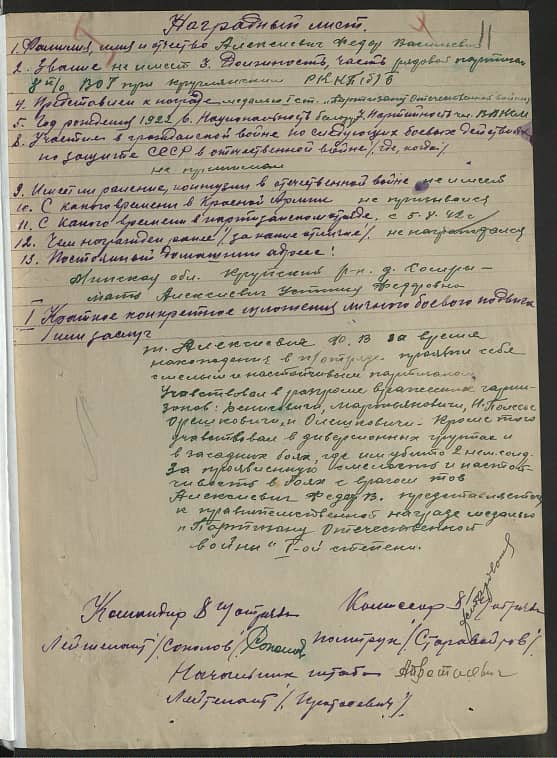 11
Наградный лист
1. Фамилия, имя и отчество Алексиевич Федор Васильевич
2. Звание не имеет 3. Должность, часть рядовой партизан
8 п/о ВОГ при Круглянском РККП(б)Б
4. Представлен к награде медалью I ст. „Партизану Отечественной войны"
5. Год рождения 1922 6. Национальность белорус 7. Партийность чл. ВЛКСМ
8. Участие в гражданской войне последующих боевых действиях
по защите СССР в отечественной войне /где, когда/
не принимал
9. Имеет ли ранение, контузии в отечественной войне не имеет
10. С какого времени в Красной Армии не призывался
11. С какого времени в партизанском отряде, с 5.X.42 г.
12. Чем награжден ранее /за какие отличия/ не награждался
13. Постоянный домашний адрес:
Минская обл. Крупский р-н д.
мать Алексиевич Федоровна
I Краткое конкретное изложения личного боевого подвига
/или заслуг
т. Алексиевич Ф. В за время
нахождения в п/отряде проявил себя
смелым и настойчивым партизаном
Участвовал в разгроме вражеских гарни-
зонов:
Орешковичи, и Олешковичи. Кроме того
участвовал в диверсионных группах и
в засадных боях, где им убито 2 нем. солд.
За проявленную смелость и настой-
чивость в боях с врагом тов
Алексиевич Федор В. представляется
к правительственной награде медалью
„Партизану Отечественной
войны" I-ой степени.
Командир 8 п/отряда Комиссар 8 п/отряда
Лейтенант /Соколов/ Соколов Политрук /Старовойтов/
Начальник штаба
Лейтенант